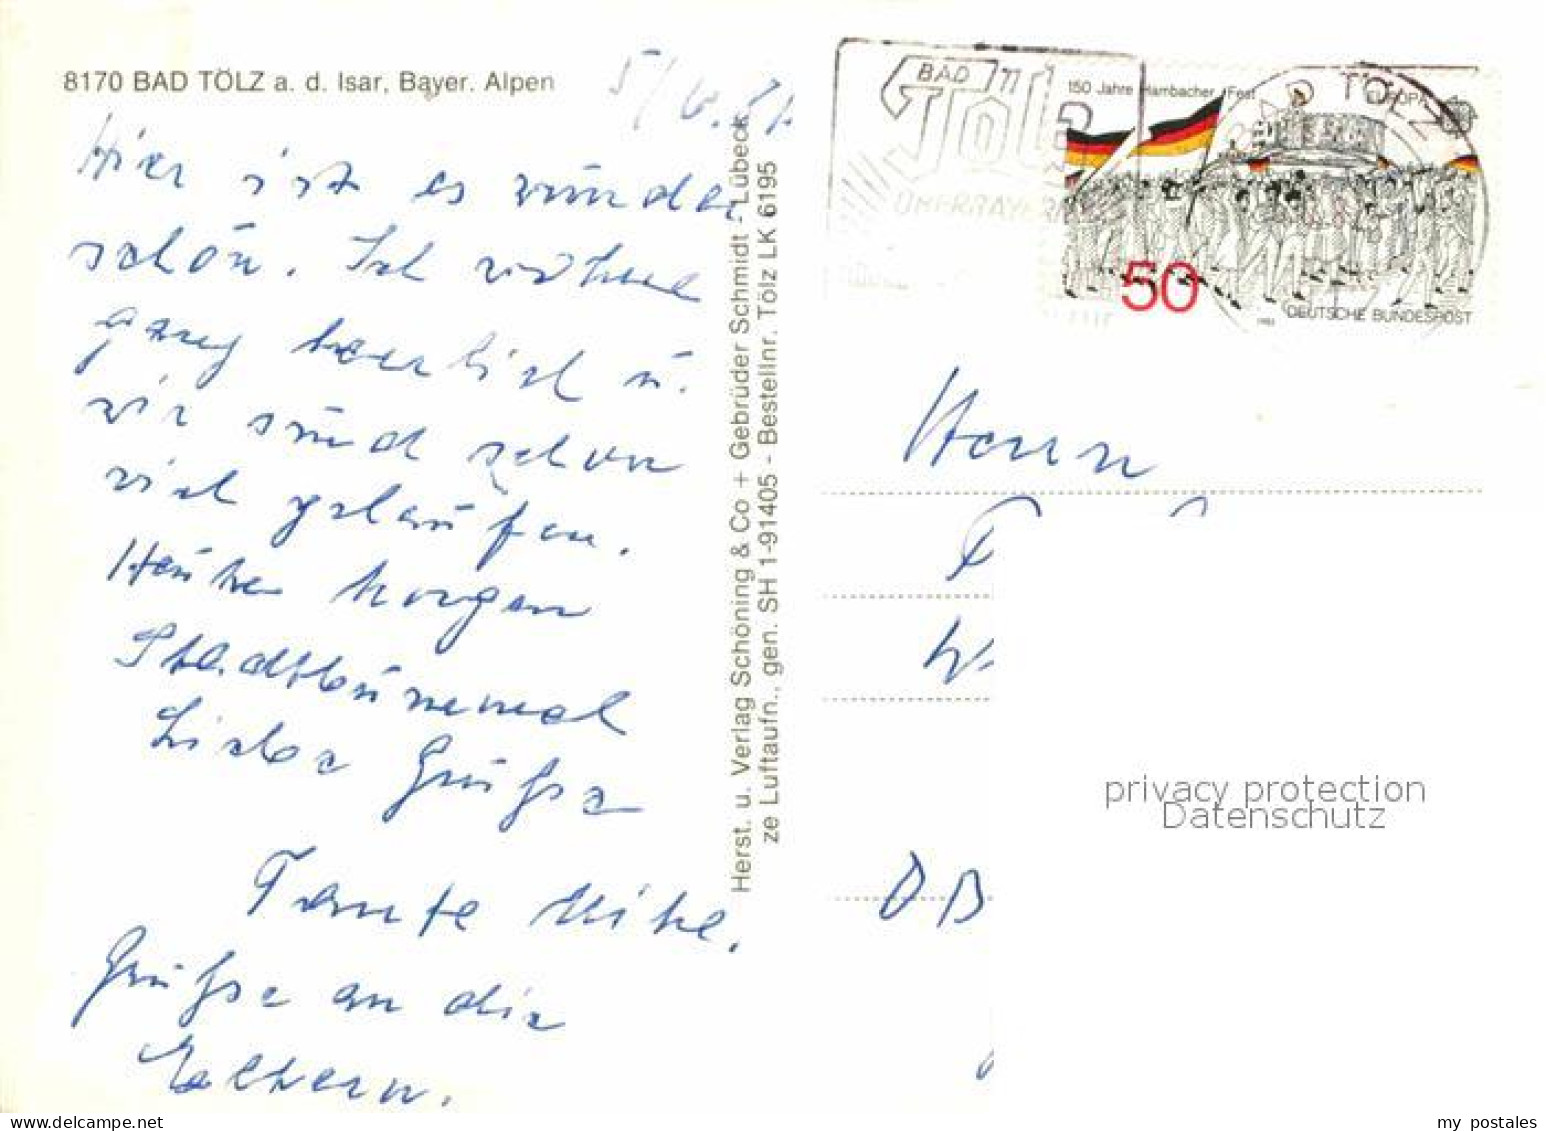 8170 BAD TÖLZ a. d. Isar, Bayer. Alpen
Hier ist es wunder
schön. Ich wohne
ganz herrlich u.
wir sind schon
viel gelaufen.
Heute Morgen
Stadtbummel
Liebe Grüße
Tante
Grüße an die
Eltern.
Herst. u. Verlag Schöning & Co + Gebrüder Schmidt - Lübeck
ze Luftaufn., gen. SH 1-91405 - Bestellnr. Tölz LK 6195
BAD
Tölz
OBERBAYERN
150 Jahre Hambacher Fest
EUROPA
50
1982
DEUTSCHE BUNDESPOST
BAD TÖLZ
Herrn
privacy protection
Datenschutz
my postales